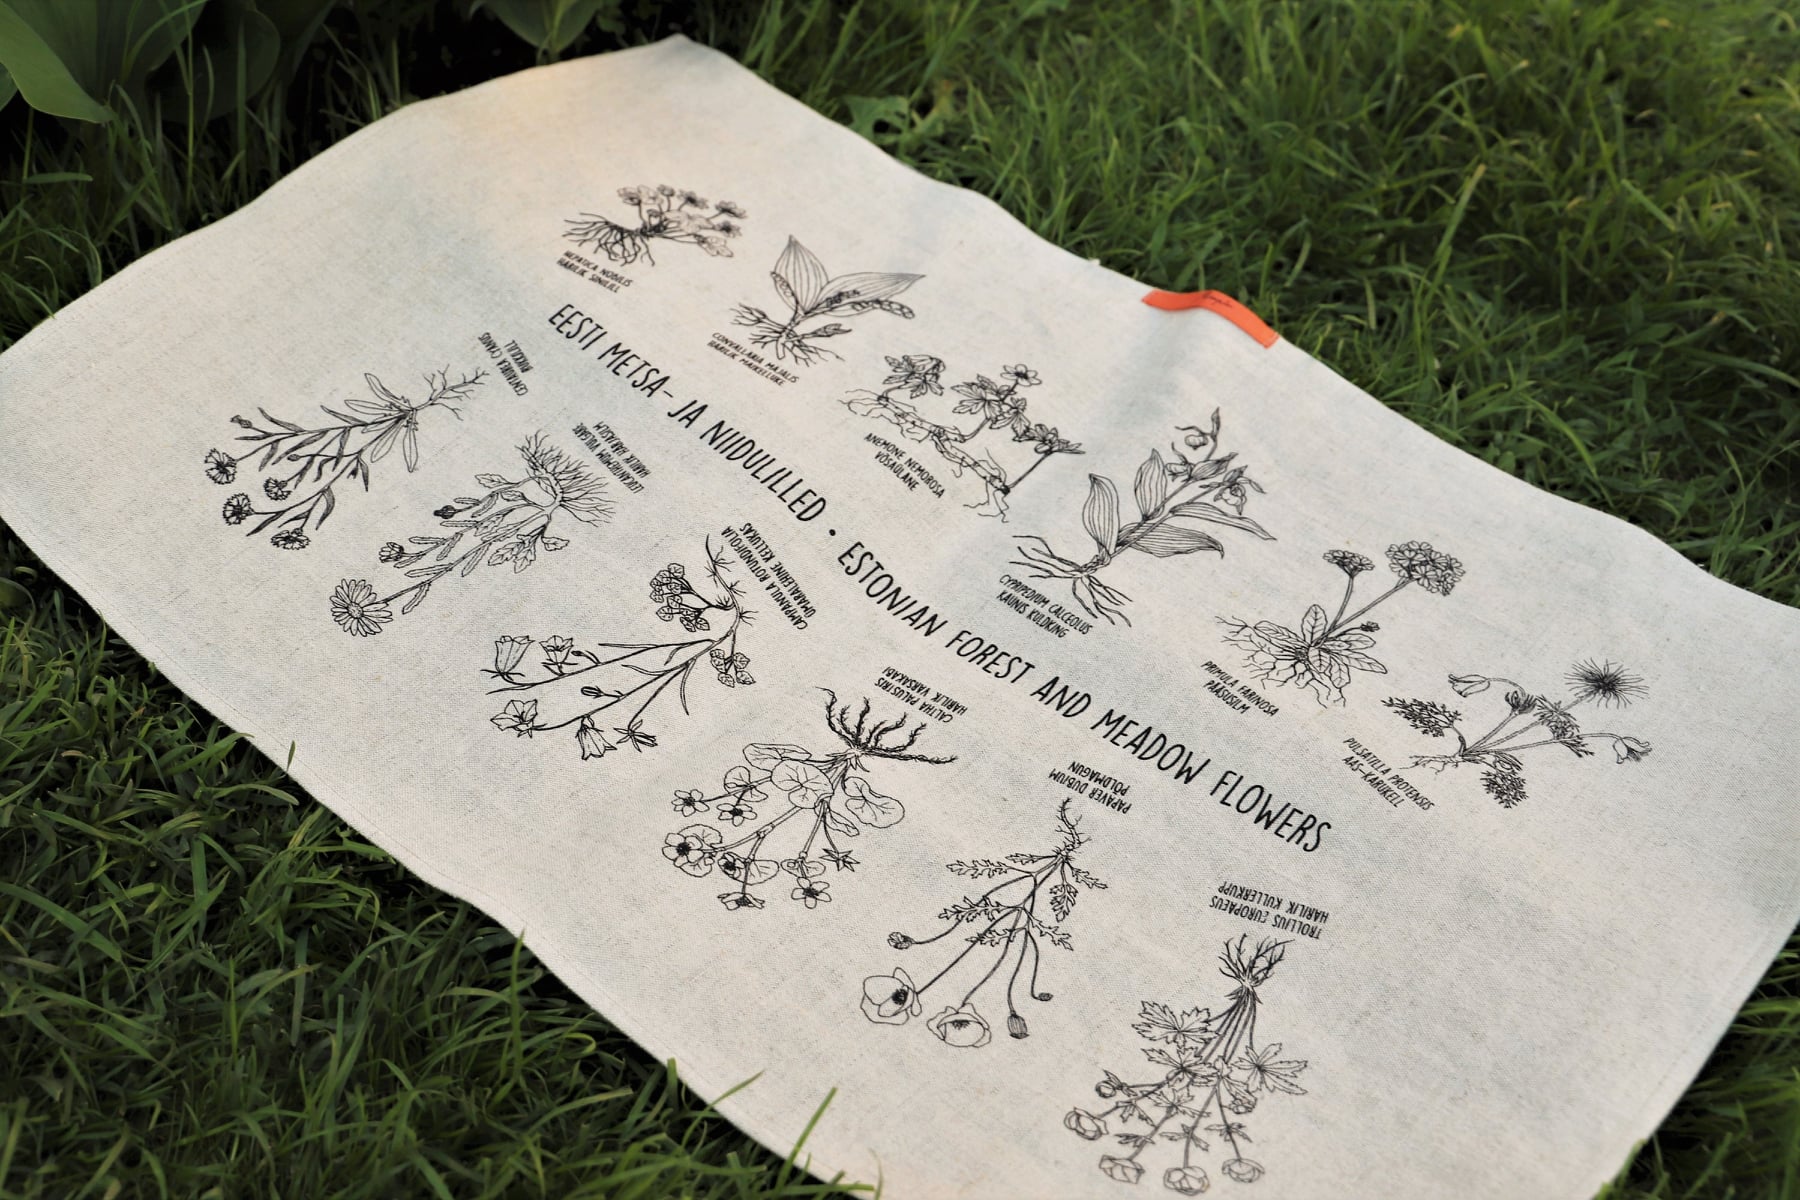 HEPATICA NOBILIS
HARILIK SINILILL
CONVALLARIA MAJALIS
HARILIK MAIKELLUKE
ANEMONE NEMOROSA
VÕSAÜLANE
CYPRIPEDIUM CALCEOLUS
KAUNIS KULDKING
PRIMULA FARINOSA
PÄÄSUSILM
PULSATILLA PROTENSIS
AAS-KARUKELL
EESTI METSA- JA NIIDULILLED • ESTONIAN FOREST AND MEADOW FLOWERS
CENTAUREA CYANUS
RUKKILILL
LEUCANTHEMUM VULGARE
HARILIK HÄRJASILM
CAMPANULA ROTUNDIFOLIA
ÜMARALEHINE KELLUKAS
CALTHA PALUSTRIS
HARILIK VARSAKABI
PAPAVER DUBIUM
PÕLDMAGUN
TROLLIUS EUROPAEUS
HARILIK KULLERKUPP